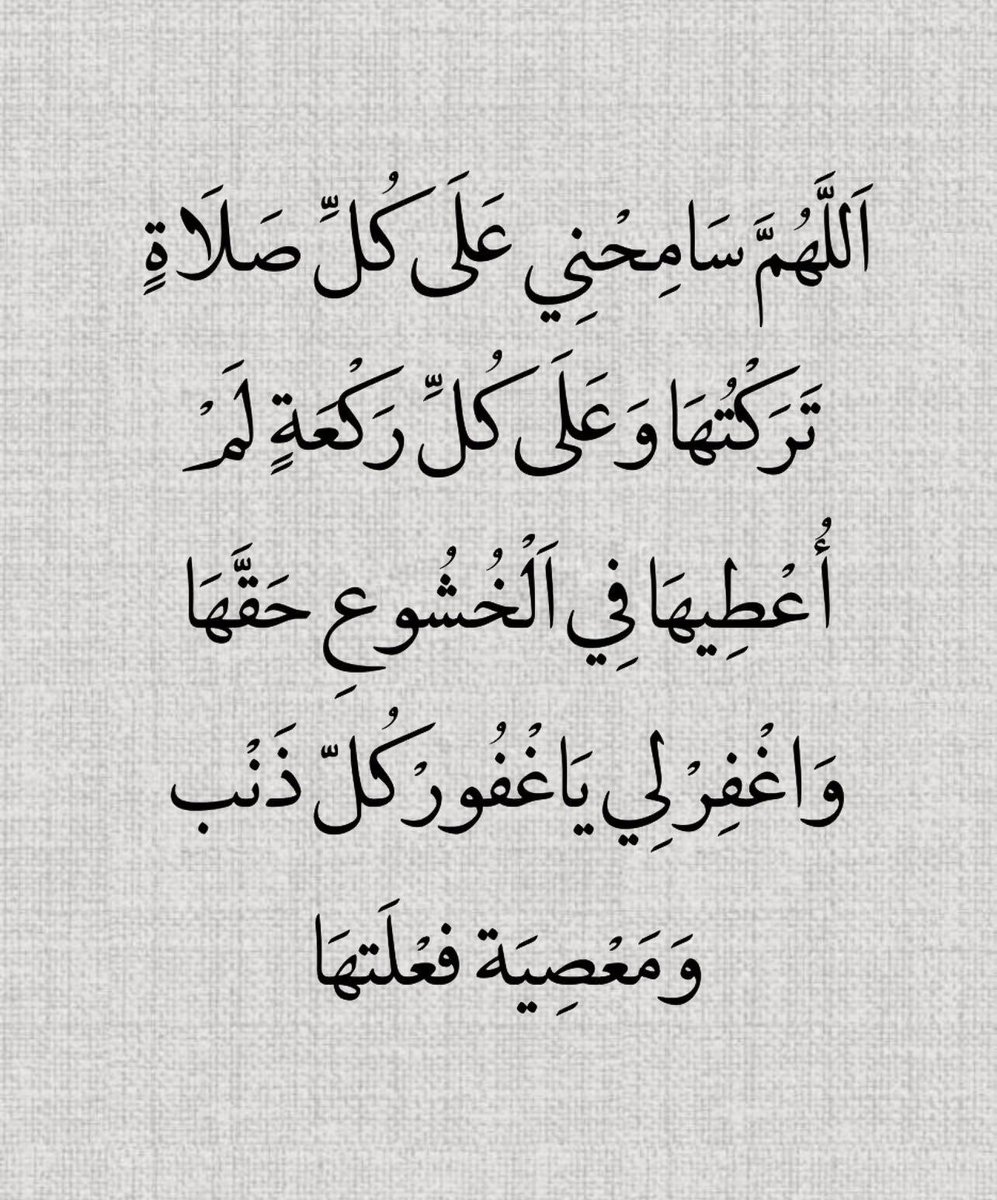 اَللَّهُمَّ سَامِحْنِي عَلَى كُلِّ صَلَاةٍ
تَرَكْتُهَا وَعَلَى كُلِّ رَكْعَةٍ لَمْ
أُعْطِيهَا فِي اَلْخُشُوعِ حَقَّهَا
وَاغْفِرْ لِي يَاغْفُورْ كُلّ ذَنْب
وَمَعْصِيَة فعْلَتهَا